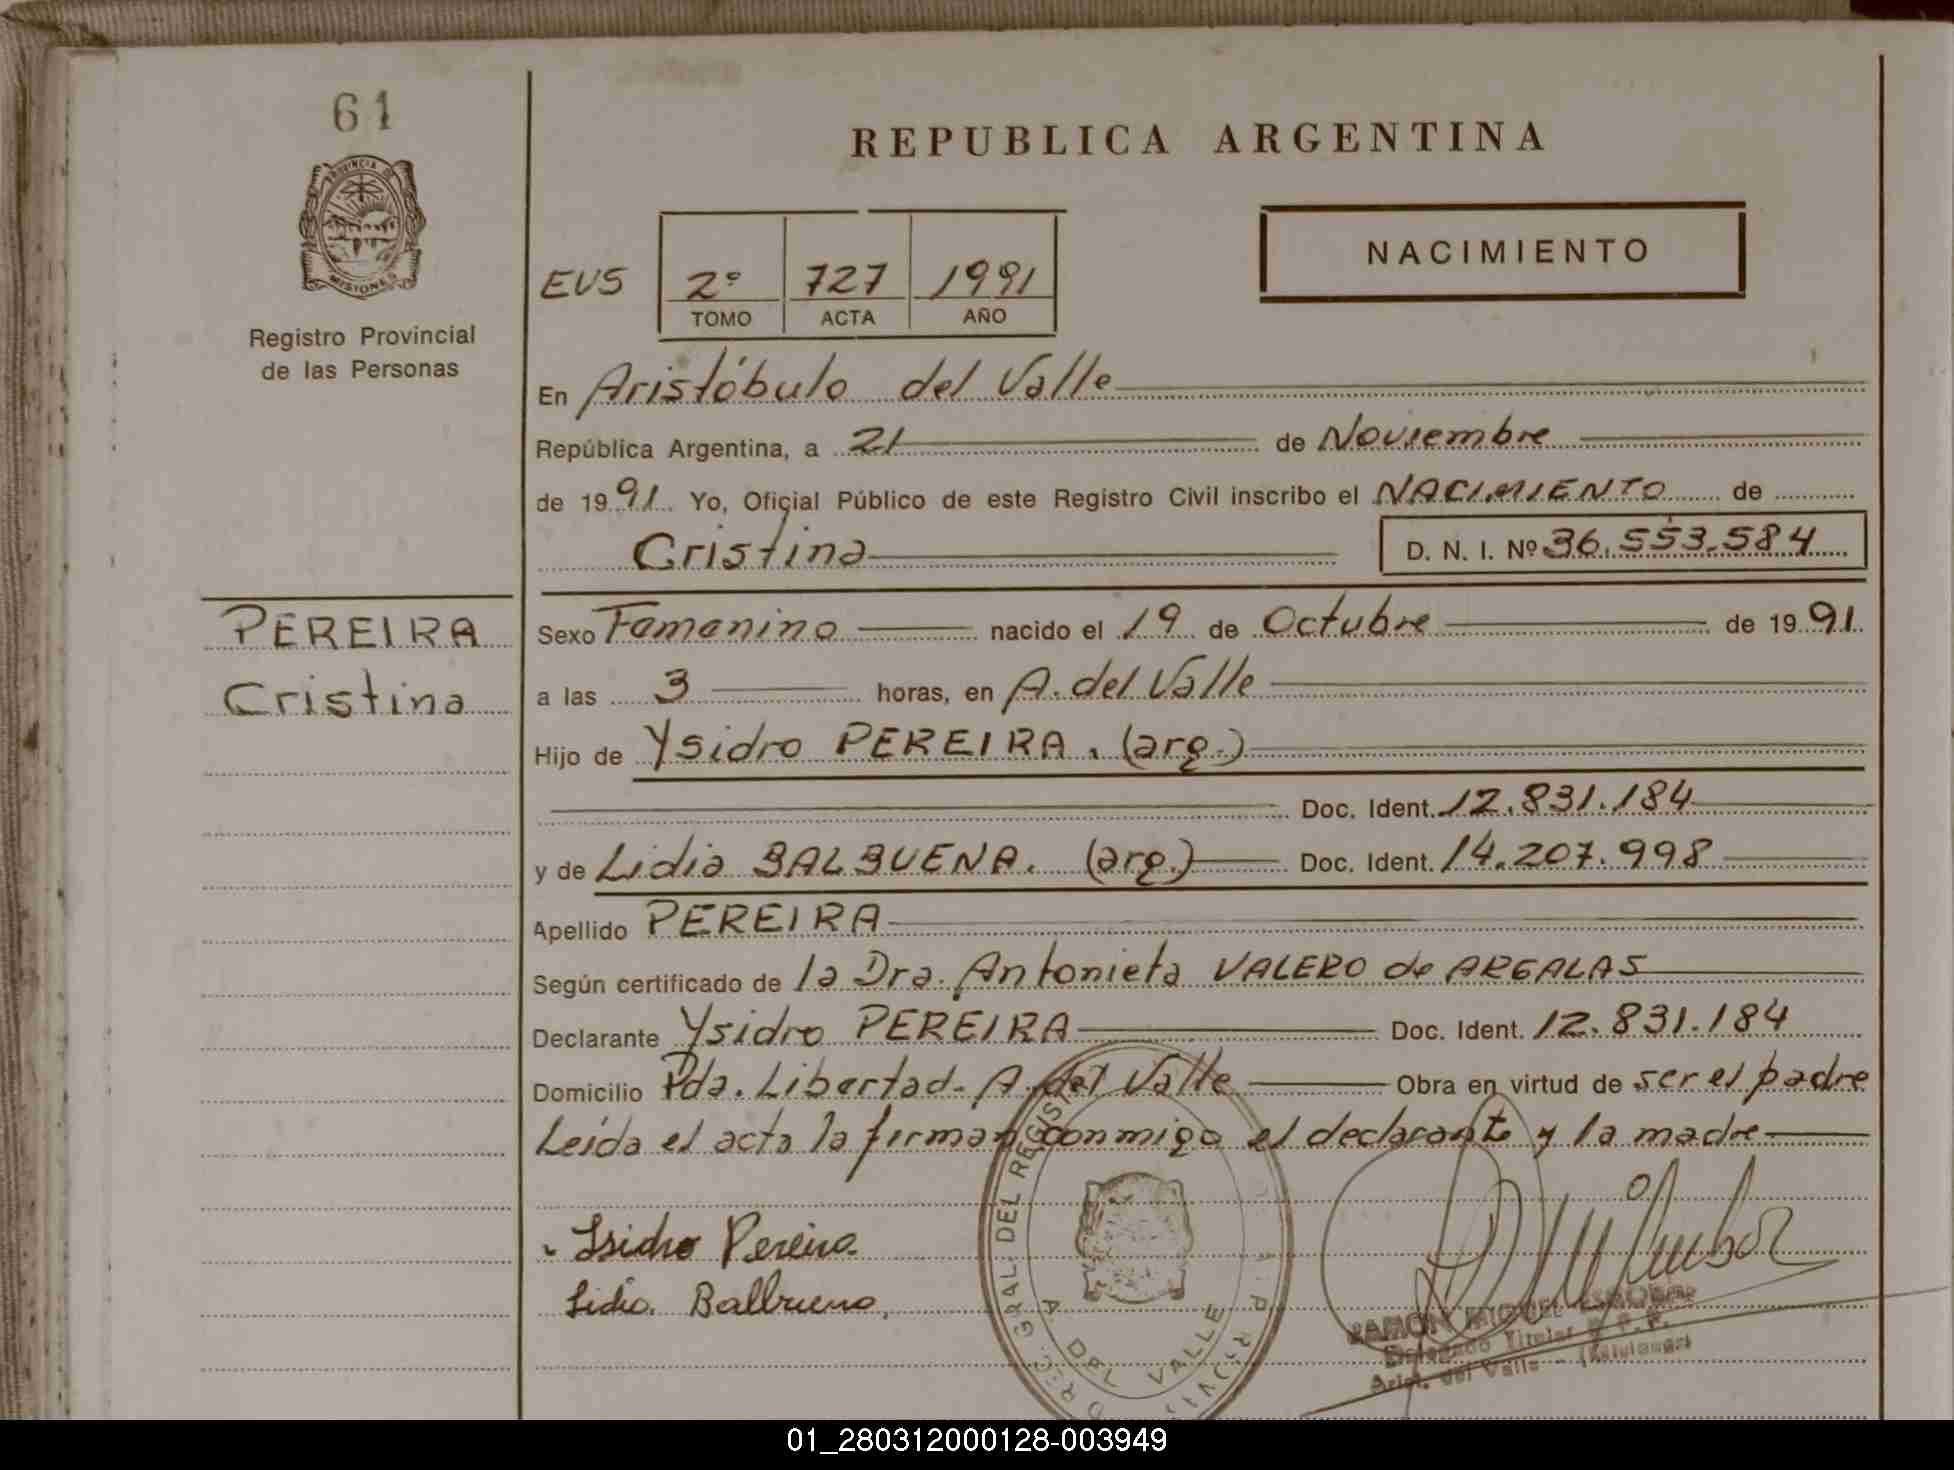 61
PROVINCIA DE
MISIONES
Registro Provincial
de las Personas
PEREIRA
Cristina
REPUBLICA ARGENTINA
NACIMIENTO
EUS 2º 727 1991
TOMO ACTA AÑO
En Aristóbulo del Valle
República Argentina, a 21 de Noviembre
de 1991 Yo, Oficial Público de este Registro Civil inscribo el NACIMIENTO de
Cristina D. N. I. Nº 36.553.584
Sexo Femenino nacido el 19 de Octubre de 1991.
a las 3 horas, en A. del Valle
Hijo de Ysidro PEREIRA. (arg.)
Doc. Ident. 12.831.184
y de Lidia BALBUENA. (arg.) Doc. Ident. 14.207.998
Apellido PEREIRA
Según certificado de la Dra. Antonieta VALERO de ARGALAS
Declarante Ysidro PEREIRA Doc. Ident. 12.831.184
Domicilio Pda. Libertad- A. del Valle Obra en virtud de ser el padre
Leída el acta la firman conmigo el declarante y la madre
Isidro Pereira
Lidia Balbuena.
GRAL. DEL REGIST
A DEL VALLE
RAMON MIGUEL ESCOBAR
Delegado Titular R. P. P.
Arist. del Valle - (Misiones)
01_280312000128-003949